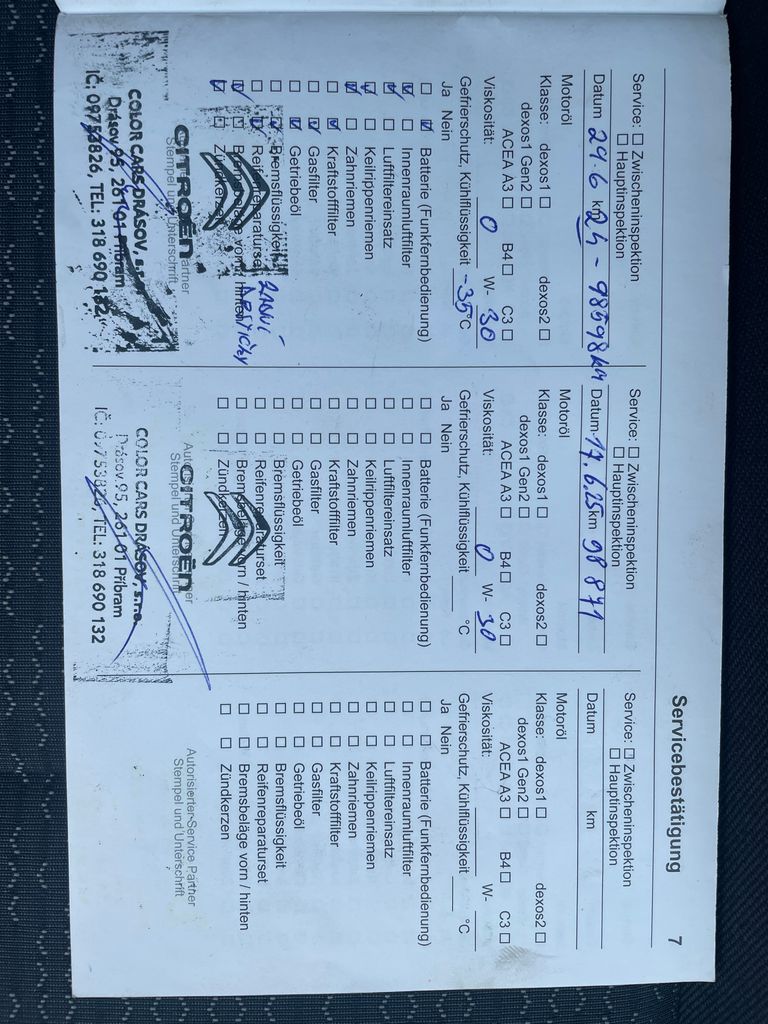 Servicebestätigung 7
Service: ☐ Zwischeninspektion
☐ Hauptinspektion
Datum 29.6 km 24 - 98598 km
Motoröl
Klasse: dexos1 ☐ dexos2 ☐
dexos1 Gen2 ☐
ACEA A3 ☐ B4 ☐ C3 ☐
Viskosität: 0 W- 30
Gefrierschutz, Kühlflüssigkeit -35°C
Ja Nein
☐ ☑ Batterie (Funkfernbedienung)
☑ ☐ Innenraumluftfilter
☑ ☐ Luftfiltereinsatz
☑ ☐ Keilrippenriemen
☑ ☐ Zahnriemen
☐ ☑ Kraftstofffilter
☐ ☑ Gasfilter
☐ ☑ Getriebeöl
☐ ☑ Bremsflüssigkeit
☐ ☑ Reifenreparaturset
☑ ☐ Bremsbeläge vorn / hinten
☑ ☐ Zündkerzen
ZADNÍ
Stempel und Unterschrift
CITROËN
COLOR CARS DRÁSOV, s.r.o.
Drásov 95, 261 01 Příbram
IČ: 09753826, TEL: 318 690 132
Service: ☐ Zwischeninspektion
☐ Hauptinspektion
Datum 17.6.25 km 98 871
Motoröl
Klasse: dexos1 ☐ dexos2 ☐
dexos1 Gen2 ☐
ACEA A3 ☐ B4 ☐ C3 ☐
Viskosität: 0 W- 30
Gefrierschutz, Kühlflüssigkeit °C
Ja Nein
☐ ☐ Batterie (Funkfernbedienung)
☐ ☐ Innenraumluftfilter
☐ ☐ Luftfiltereinsatz
☐ ☐ Keilrippenriemen
☐ ☐ Zahnriemen
☐ ☐ Kraftstofffilter
☐ ☐ Gasfilter
☐ ☐ Getriebeöl
☐ ☐ Bremsflüssigkeit
☐ ☐ Reifenreparaturset
☐ ☐ Bremsbeläge vorn / hinten
☐ ☐ Zündkerzen
Stempel und Unterschrift
CITROËN
COLOR CARS DRÁSOV, s.r.o.
Drásov 95, 261 01 Příbram
IČ: 09753826, TEL: 318 690 132
Service: ☐ Zwischeninspektion
☐ Hauptinspektion
Datum km
Motoröl
Klasse: dexos1 ☐ dexos2 ☐
dexos1 Gen2 ☐
ACEA A3 ☐ B4 ☐ C3 ☐
Viskosität: W-
Gefrierschutz, Kühlflüssigkeit °C
Ja Nein
☐ ☐ Batterie (Funkfernbedienung)
☐ ☐ Innenraumluftfilter
☐ ☐ Luftfiltereinsatz
☐ ☐ Keilrippenriemen
☐ ☐ Zahnriemen
☐ ☐ Kraftstofffilter
☐ ☐ Gasfilter
☐ ☐ Getriebeöl
☐ ☐ Bremsflüssigkeit
☐ ☐ Reifenreparaturset
☐ ☐ Bremsbeläge vorn / hinten
☐ ☐ Zündkerzen
Autorisierter Service Partner
Stempel und Unterschrift